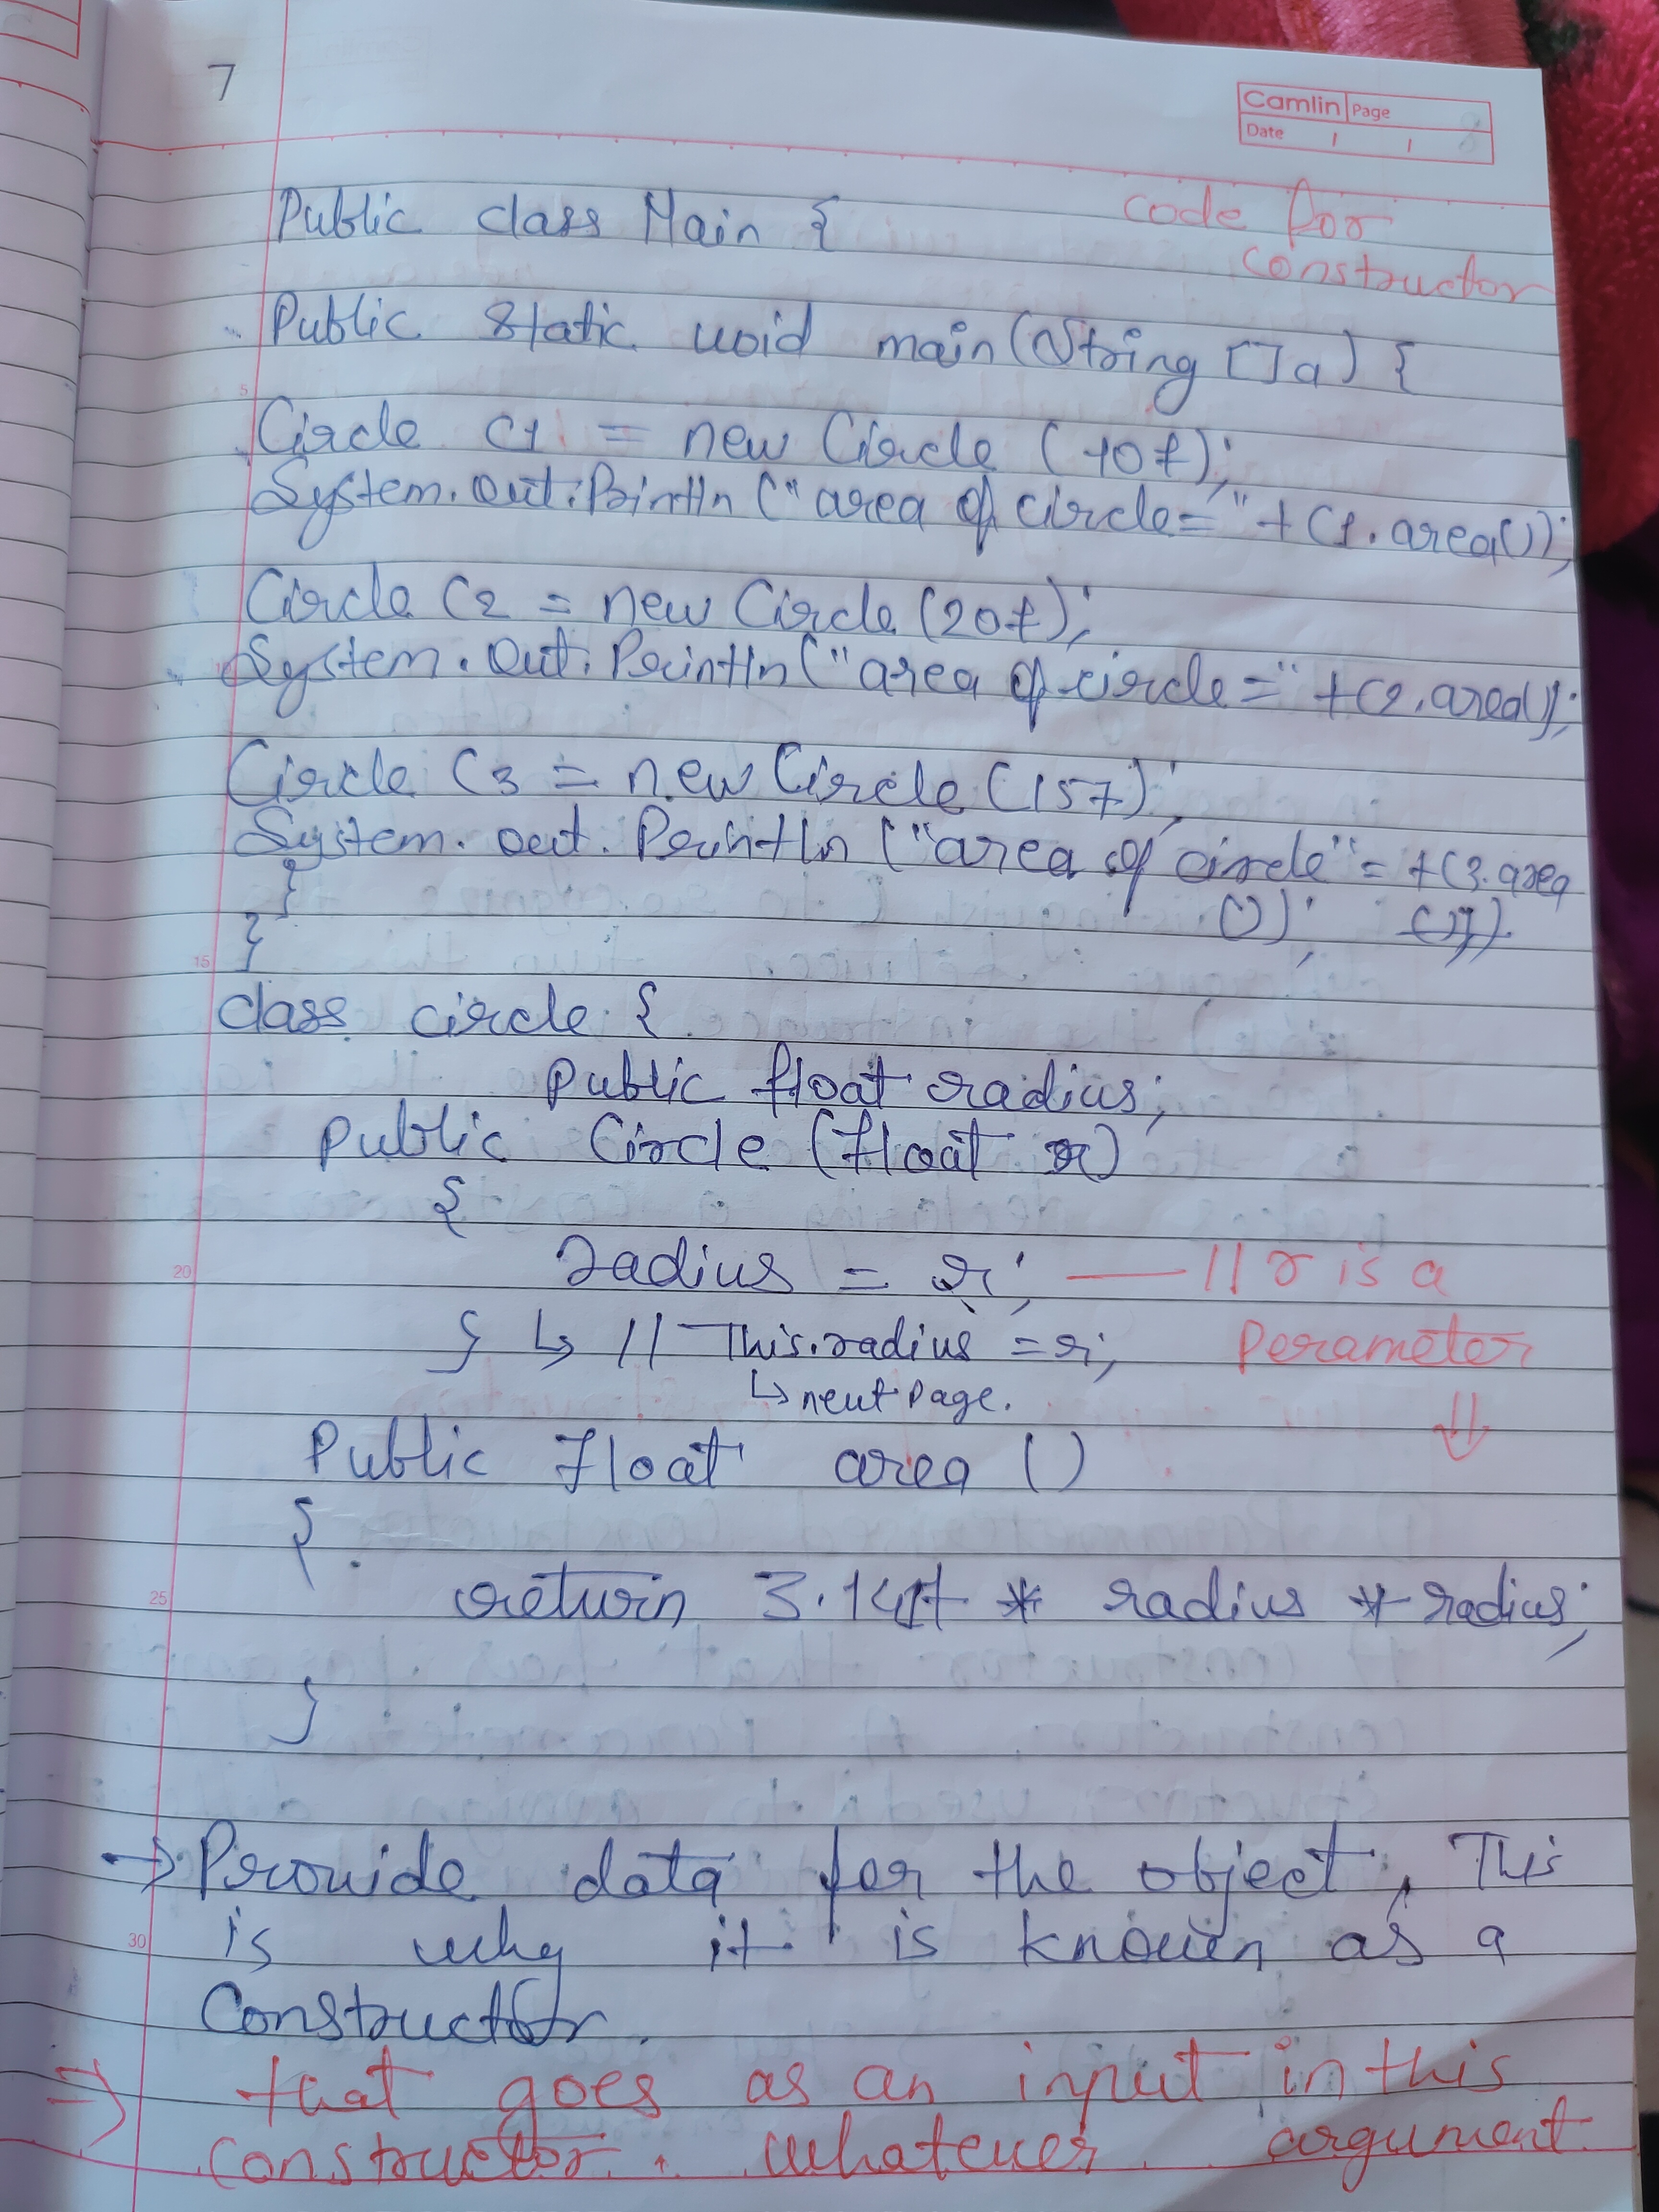 7
Camlin Page 8
Date / /
code for
constructor
Public class Main {
Public static void main(String []a) {
Circle C1 = new Circle (10f);
System.out.Println ("area of circle=" + C1.area());
Circle C2 = new Circle (20f);
System.out.Println ("area of circle=" + C2.area();
Circle C3 = new Circle (15f);
System.out.Println ("area of circle" = +C3.area
} ());
}
15
class circle {
Public float radius;
Public Circle (float r)
{
20 radius = r; — // r is a
} ↳ // This.radius = r; Perameter
↳ neut Page. ⇓
Public Float area ()
{
25 return 3.14f * radius * radius;
}
→ Provide data for the object, This
30 is why it is known as a
Constructor.
⇒ that goes as an input in this
constructor. whatever argument